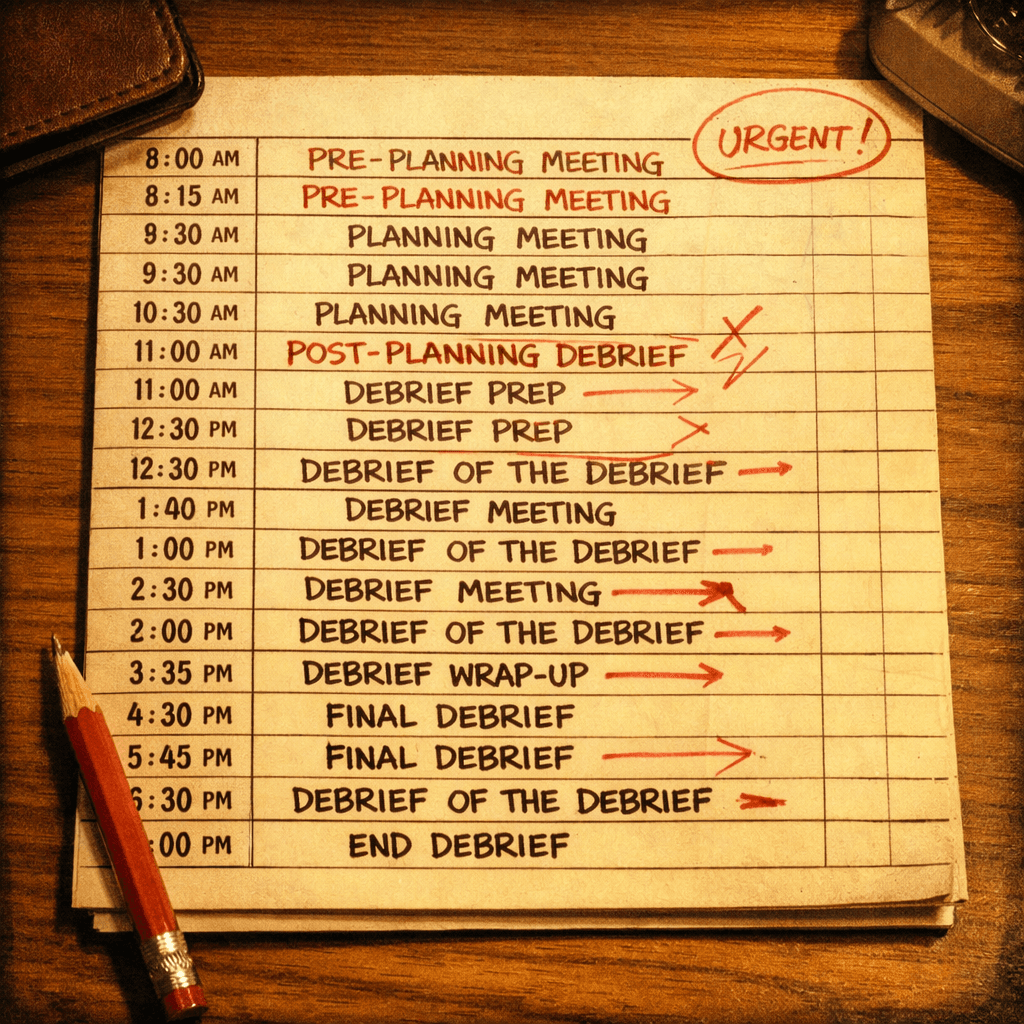 URGENT!
8:00 AM PRE-PLANNING MEETING
8:15 AM PRE-PLANNING MEETING
9:30 AM PLANNING MEETING
9:30 AM PLANNING MEETING
10:30 AM PLANNING MEETING
11:00 AM POST-PLANNING DEBRIEF
11:00 AM DEBRIEF PREP
12:30 PM DEBRIEF PREP
12:30 PM DEBRIEF OF THE DEBRIEF
1:40 PM DEBRIEF MEETING
1:00 PM DEBRIEF OF THE DEBRIEF
2:30 PM DEBRIEF MEETING
2:00 PM DEBRIEF OF THE DEBRIEF
3:35 PM DEBRIEF WRAP-UP
4:30 PM FINAL DEBRIEF
5:45 PM FINAL DEBRIEF
6:30 PM DEBRIEF OF THE DEBRIEF
:00 PM END DEBRIEF